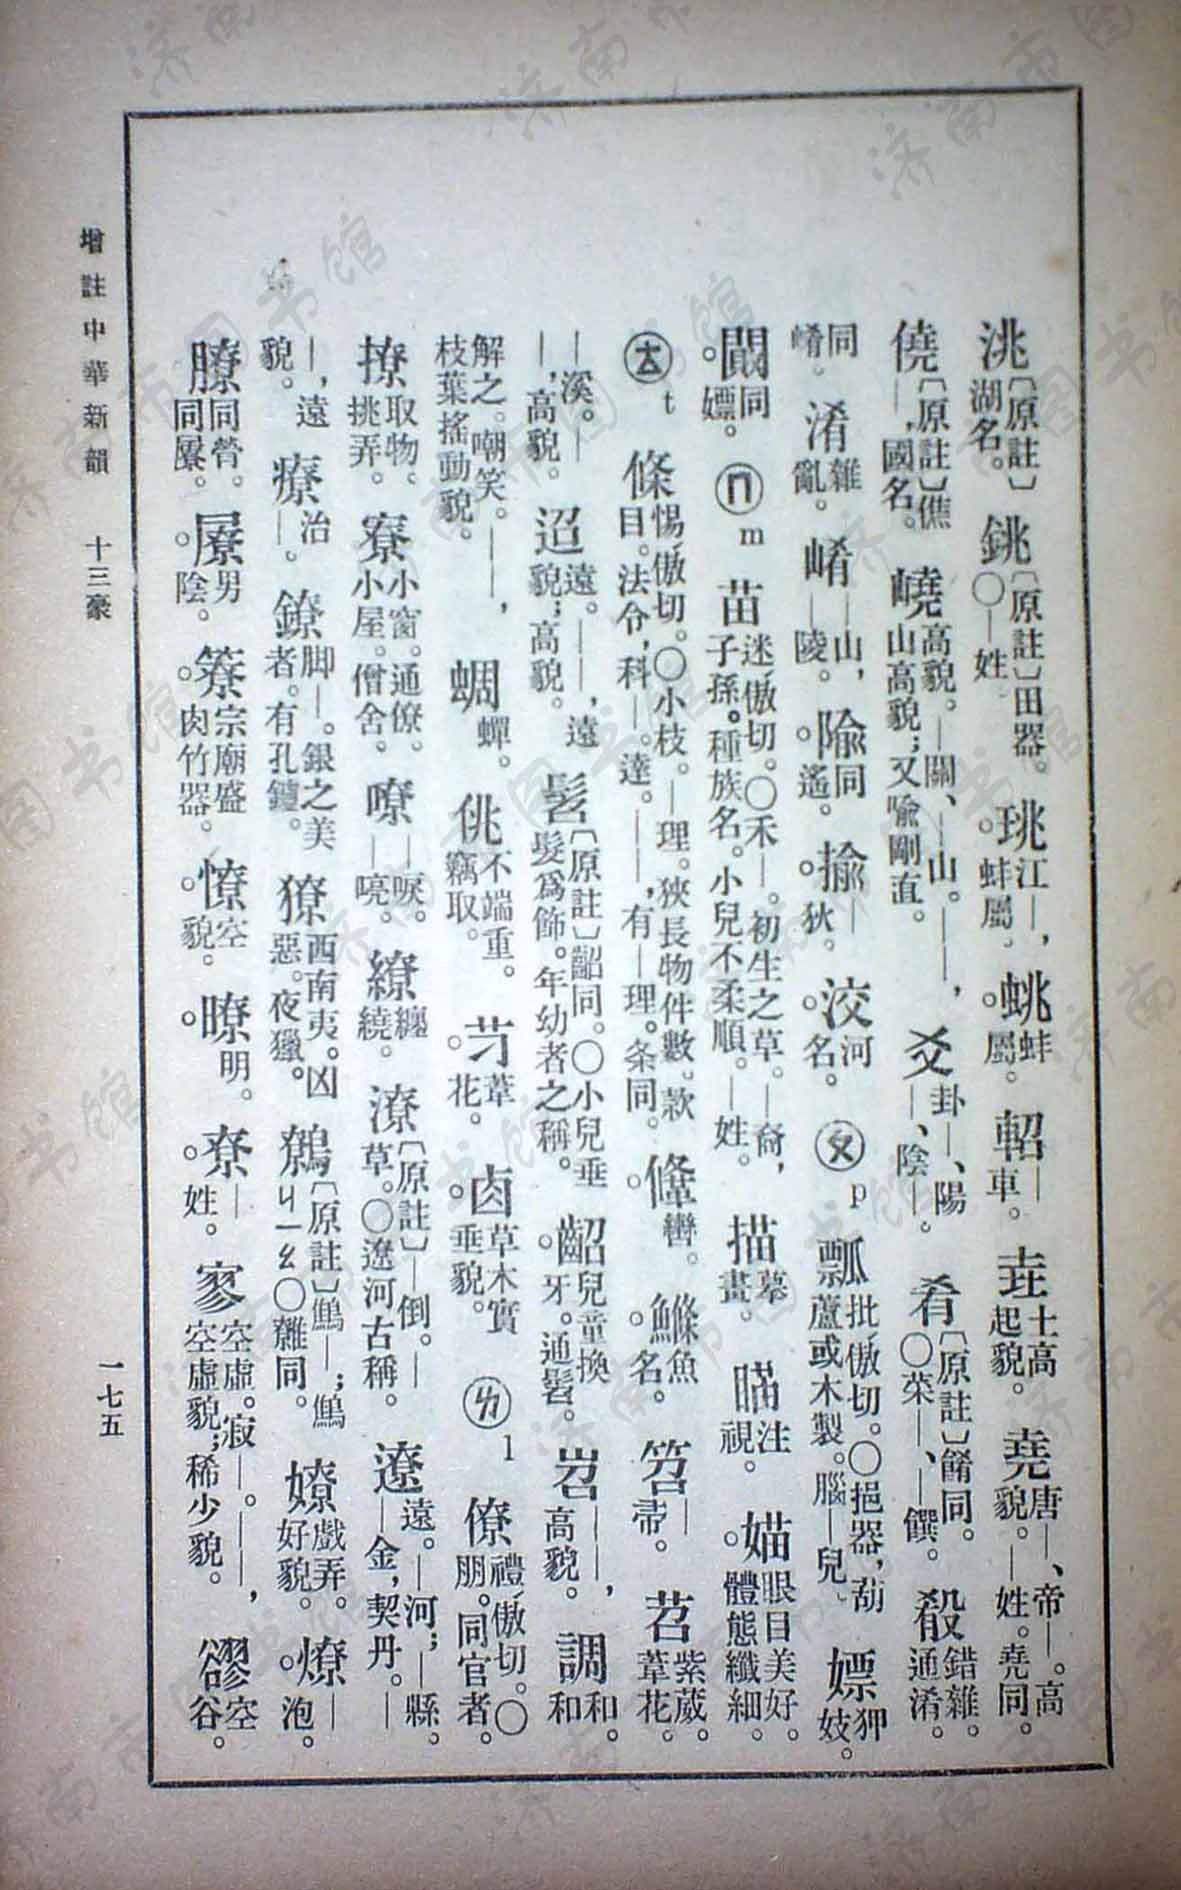 洮〔原註〕湖名。銚〔原註〕田器。〇—姓。珧江—，蚌屬。蛁蚌屬。軺—車。垚土高起貌。堯唐—、帝—。高貌。—姓。尭同。
僥〔原註〕僬—，國名。嶢高貌。—關、—山。——，山高貌；又喩剛直。爻卦—、陽—、陰—。肴〔原註〕餚同。〇菜—、—饌。殽錯雜。通淆。
同崤。淆雜亂。崤—山，—陵。隃同遙。揄—狄。洨河名。㊛p 瓢批傲切。〇挹器，葫蘆或木製。腦—兒。嫖狎妓。
同嫖。m 苗迷傲切。〇禾—。初生之草。—裔，子孫。種族名。小兒不柔順。—姓。描摹畫。瞄注視。媌眼目美好。體態纖細。
t 條惕傲切。〇小枝。—理。狹長物件數。款目。法令，科—。達。——，有—理。条同。鞗轡。鰷魚名。笤—帚。苕紫葳。葦花。
—溪。——，高貌。迢遠。——，遠貌；高貌。髫〔原註〕齠同。〇小兒垂髮爲飾。年幼者之稱。齠兒童換牙。通髫。岧——，高貌。調和。和
解之。嘲笑。——，枝葉搖動貌。蜩蟬。佻不端重。竊取。艿葦花。卤草木實垂貌。ㄌl 僚禮傲切。〇朋。同官者。
撩取物。挑弄。寮小窗。通僚。小屋。僧舍。嘹—唳。—喨。繚纏繞。潦〔原註〕—倒。—草。〇遼河古稱。遼遠。—河；—縣。—金，契丹。—
—，遠貌。療治—。鐐脚—。銀之美者。有孔鑪。獠西南夷。凶惡。夜獵。鷯〔原註〕鷦—；鷦ㄐㄧㄠ〇雞同。嫽戲弄。好貌。燎—泡。
膫同膋。同屪。屪男陰。簝宗廟盛肉竹器。憭空貌。暸明。尞—姓。寥空虛。寂—。——，空虛貌；稀少貌。豂空谷。
增註中華新韻　十三豪
一七五